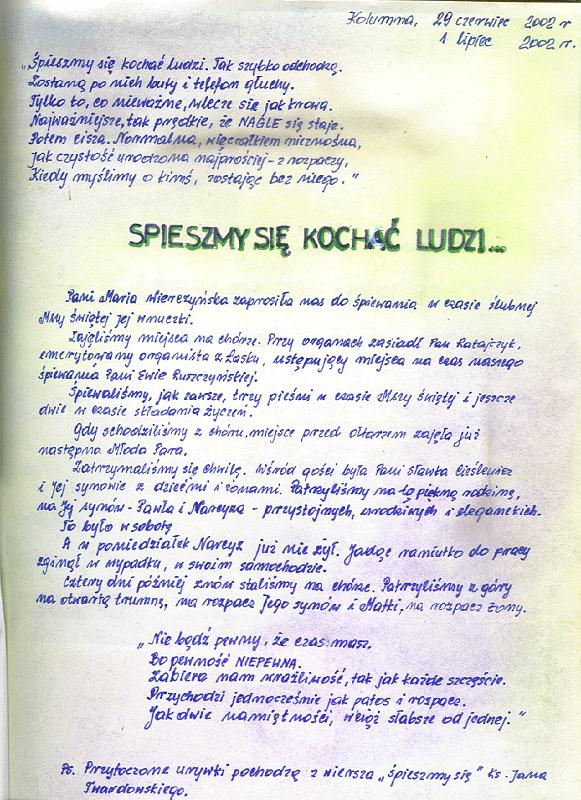 Kolumna, 29 czerwiec 2002 r
1 lipiec 2002 r.
„Śpieszmy się kochać ludzi. Tak szybko odchodzą.
Zostaną po nich buty i telefon głuchy.
Tylko to, co nieważne, wlecze się jak krowa.
Najważniejsze, tak prędkie, że NAGLE się staje.
Potem cisza. Normalna, więc całkiem nieznośna,
Jak czystość urodzona najprościej - z rozpaczy,
Kiedy myślimy o kimś, zostając bez niego."
SPIESZMY SIĘ KOCHAĆ LUDZI...
Pani Maria Wierczyńska zaprosiła nas do śpiewania w czasie ślubnej
Mszy Świętej Jej wnuczki.
Zajęliśmy miejsca na chórze. Przy organach zasiadł Pan Ratajczyk,
emerytowany organista z Łasku, ustępujący miejsca na czas naszego
śpiewania Pani Ewie Ruszczyńskiej.
Śpiewaliśmy, jak zawsze, trzy pieśni w czasie Mszy Świętej i jeszcze
dwie w czasie składania życzeń.
Gdy schodziliśmy z chóru, miejsce przed ołtarzem zajęła już
następna Młoda Para.
Zatrzymaliśmy się chwilę. Wśród gości była Pani Sławka Cieślewicz
i Jej synowie z dziećmi i żonami. Patrzyliśmy na tę piękną rodzinę,
na Jej synów - Pawła i Narcyza - przystojnych, urodziwych i eleganckich.
To było w sobotę
A w poniedziałek Narcyz już nie żył. Jadąc raniutko do pracy
zginął w wypadku, w swoim samochodzie.
Cztery dni później znów staliśmy na chórze. Patrzyliśmy z góry
na otwartą trumnę, na rozpacz Jego synów i Matki, na rozpacz żony.
„Nie bądź pewny, że czas masz.
Bo pewność NIEPEWNA.
Zabiera nam wrażliwość, tak jak każde szczęście.
Przychodzi jednocześnie jak patos i rozpacz.
Jak dwie namiętności, wciąż słabsze od jednej."
Ps. Przytoczone urywki pochodzą z wiersza „Śpieszmy się" ks. Jana
Twardowskiego.